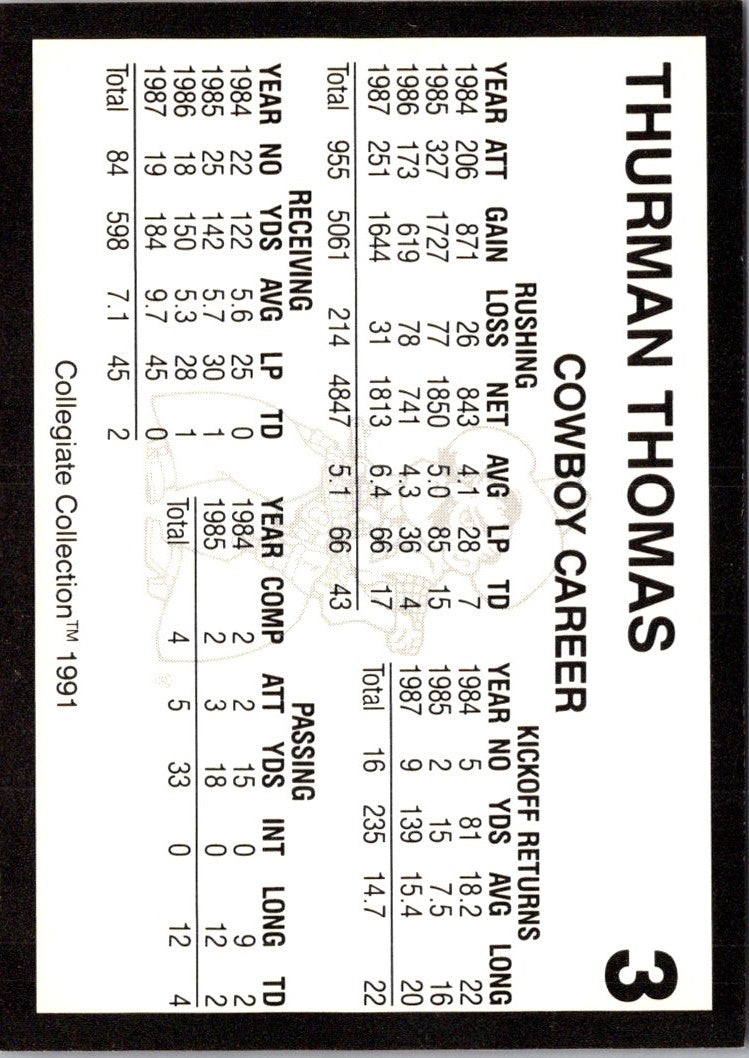 THURMAN THOMAS 3
COWBOY CAREER
RUSHING
YEAR ATT GAIN LOSS NET AVG LP TD
1984 206 871 26 843 4.1 28 7
1985 327 1727 77 1850 5.0 85 15
1986 173 619 78 741 4.3 36 4
1987 251 1644 31 1813 6.4 66 17
Total 955 5061 214 4847 5.1 66 43
KICKOFF RETURNS
YEAR NO YDS AVG LONG
1984 5 81 18.2 22
1985 2 15 7.5 16
1987 9 139 15.4 20
Total 16 235 14.7 22
RECEIVING
YEAR NO YDS AVG LP TD
1984 22 122 5.6 25 0
1985 25 142 5.7 30 1
1986 18 150 5.3 28 1
1987 19 184 9.7 45 0
Total 84 598 7.1 45 2
PASSING
YEAR COMP ATT YDS INT LONG TD
1984 2 2 15 0 9 2
1985 2 3 18 0 12 2
Total 4 5 33 0 12 4
Collegiate Collection™ 1991